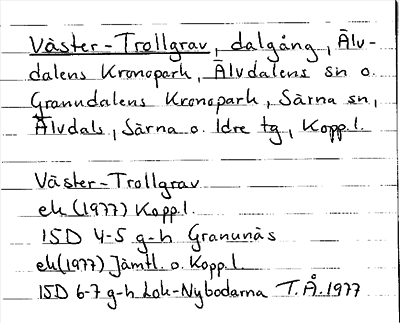 Väster-Trollgrav, dalgång, Älv-
dalens Kronopark, Älvdalens sn o.
Granndalens Kronopark, Särna sn,
Älvdals, Särna o. Idre tg, Kopp.l.
Väster-Trollgrav
ek (1977) Kopp.l.
15D 4-5 g-h Granunäs
ek (1977) Jämtl. o. Kopp.l.
15D 6-7 g-h Lok-Nybodarna T.Å. 1977